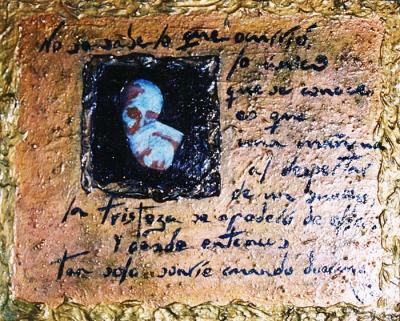 No se sabe lo que ocurrió,
lo único
que se conoce
es que
una mañana
al despertar
de un sueño,
la tristeza se apoderó de ella,
Y desde entonces
tan solo sonríe cuando duerme.